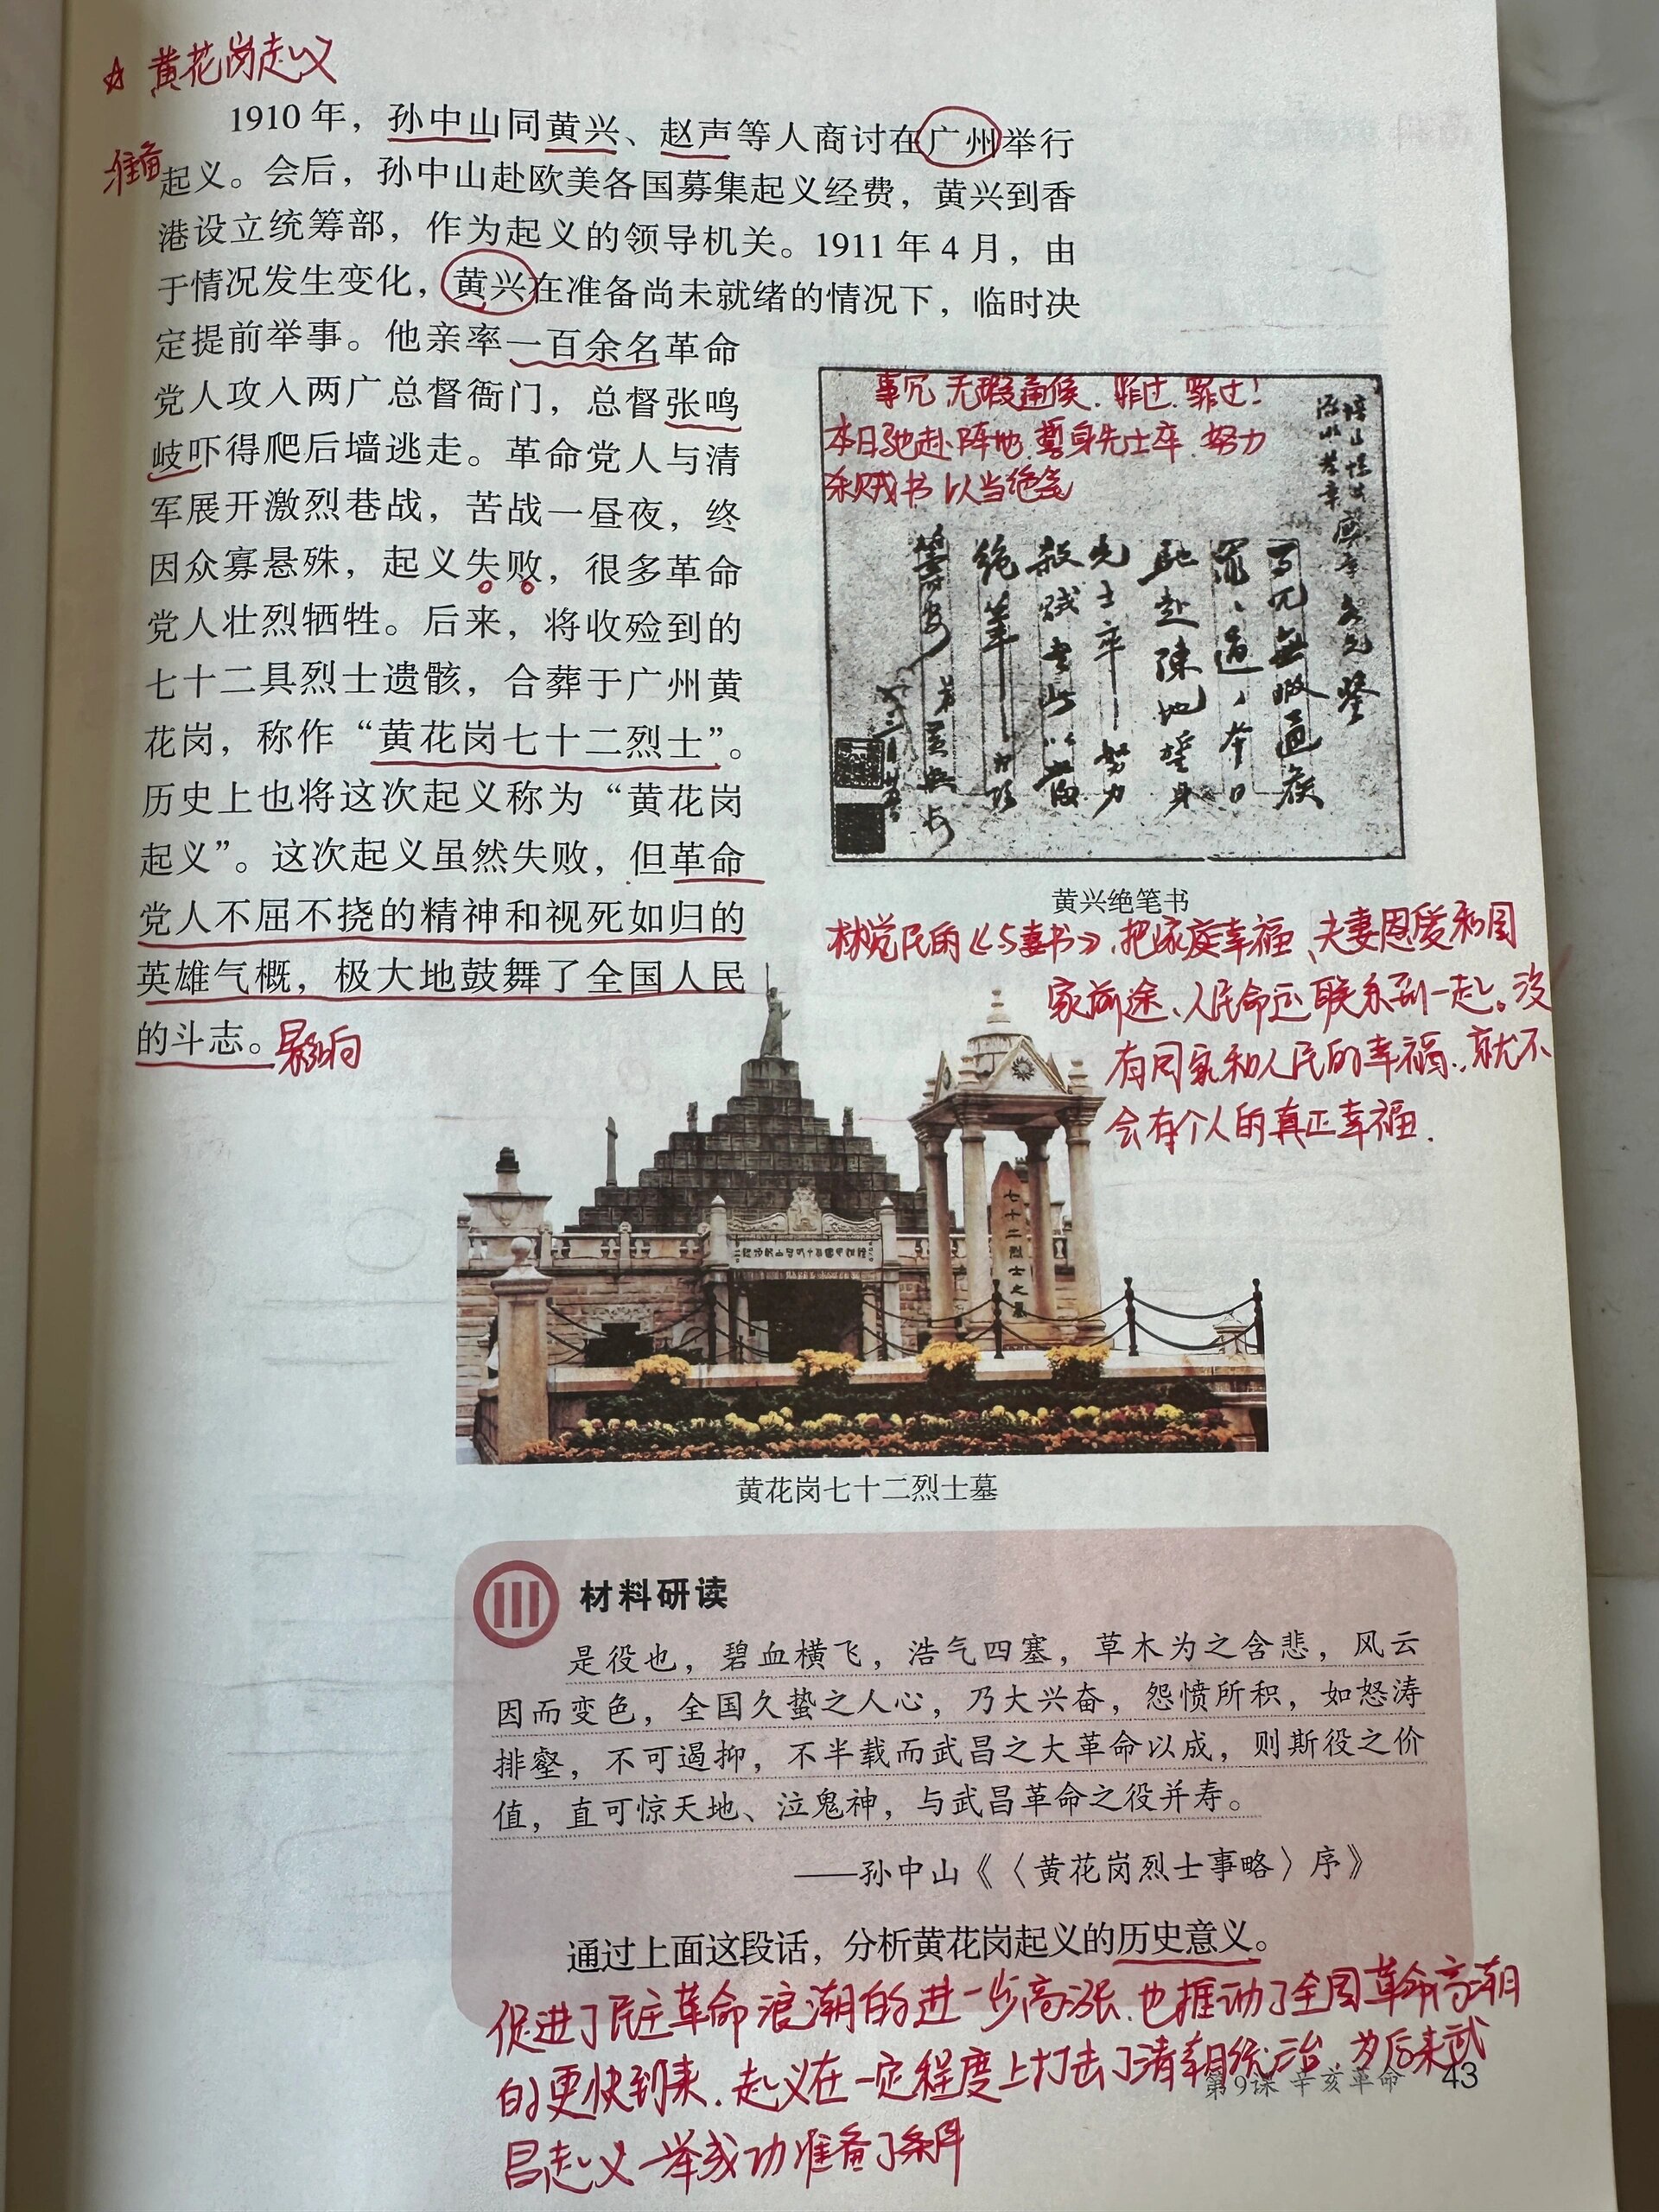 ☆ 黄花岗起义
准备
1910年，孙中山同黄兴、赵声等人商讨在广州举行
起义。会后，孙中山赴欧美各国募集起义经费，黄兴到香
港设立统筹部，作为起义的领导机关。1911年4月，由
于情况发生变化，黄兴在准备尚未就绪的情况下，临时决
定提前举事。他亲率一百余名革命
党人攻入两广总督衙门，总督张鸣
岐吓得爬后墙逃走。革命党人与清
军展开激烈巷战，苦战一昼夜，终
因众寡悬殊，起义失败，很多革命
党人壮烈牺牲。后来，将收殓到的
七十二具烈士遗骸，合葬于广州黄
花岗，称作“黄花岗七十二烈士”。
历史上也将这次起义称为“黄花岗
起义”。这次起义虽然失败，但革命
党人不屈不挠的精神和视死如归的
英雄气概，极大地鼓舞了全国人民
的斗志。影响
事冗 无暇通候. 罪过. 罪过!
本日驰赴阵地. 誓身先士卒. 努力
杀贼书 以当绝笔
事冗無暇通候
罪、過、本日
馳赴陣地誓身
先士卒努力
殺賊書此以當
絶筆
黄兴绝笔书
林觉民的《与妻书》. 把家庭幸福、夫妻恩爱和国
家前途、人民命运联系到一起。没
有国家和人民的幸福, 就不
会有个人的真正幸福.
七十二烈士之墓
黄花岗七十二烈士墓
材料研读
是役也，碧血横飞，浩气四塞，草木为之含悲，风云
因而变色，全国久蛰之人心，乃大兴奋，怨愤所积，如怒涛
排壑，不可遏抑，不半载而武昌之大革命以成，则斯役之价
值，直可惊天地、泣鬼神，与武昌革命之役并寿。
——孙中山《〈黄花岗烈士事略〉序》
通过上面这段话，分析黄花岗起义的历史意义。
促进了民主革命浪潮的进一步高涨. 也推动了全国革命高潮
的更快到来. 起义在一定程度上打击了清朝统治 为后来武
昌起义一举成功准备了条件
第9课 辛亥革命 43